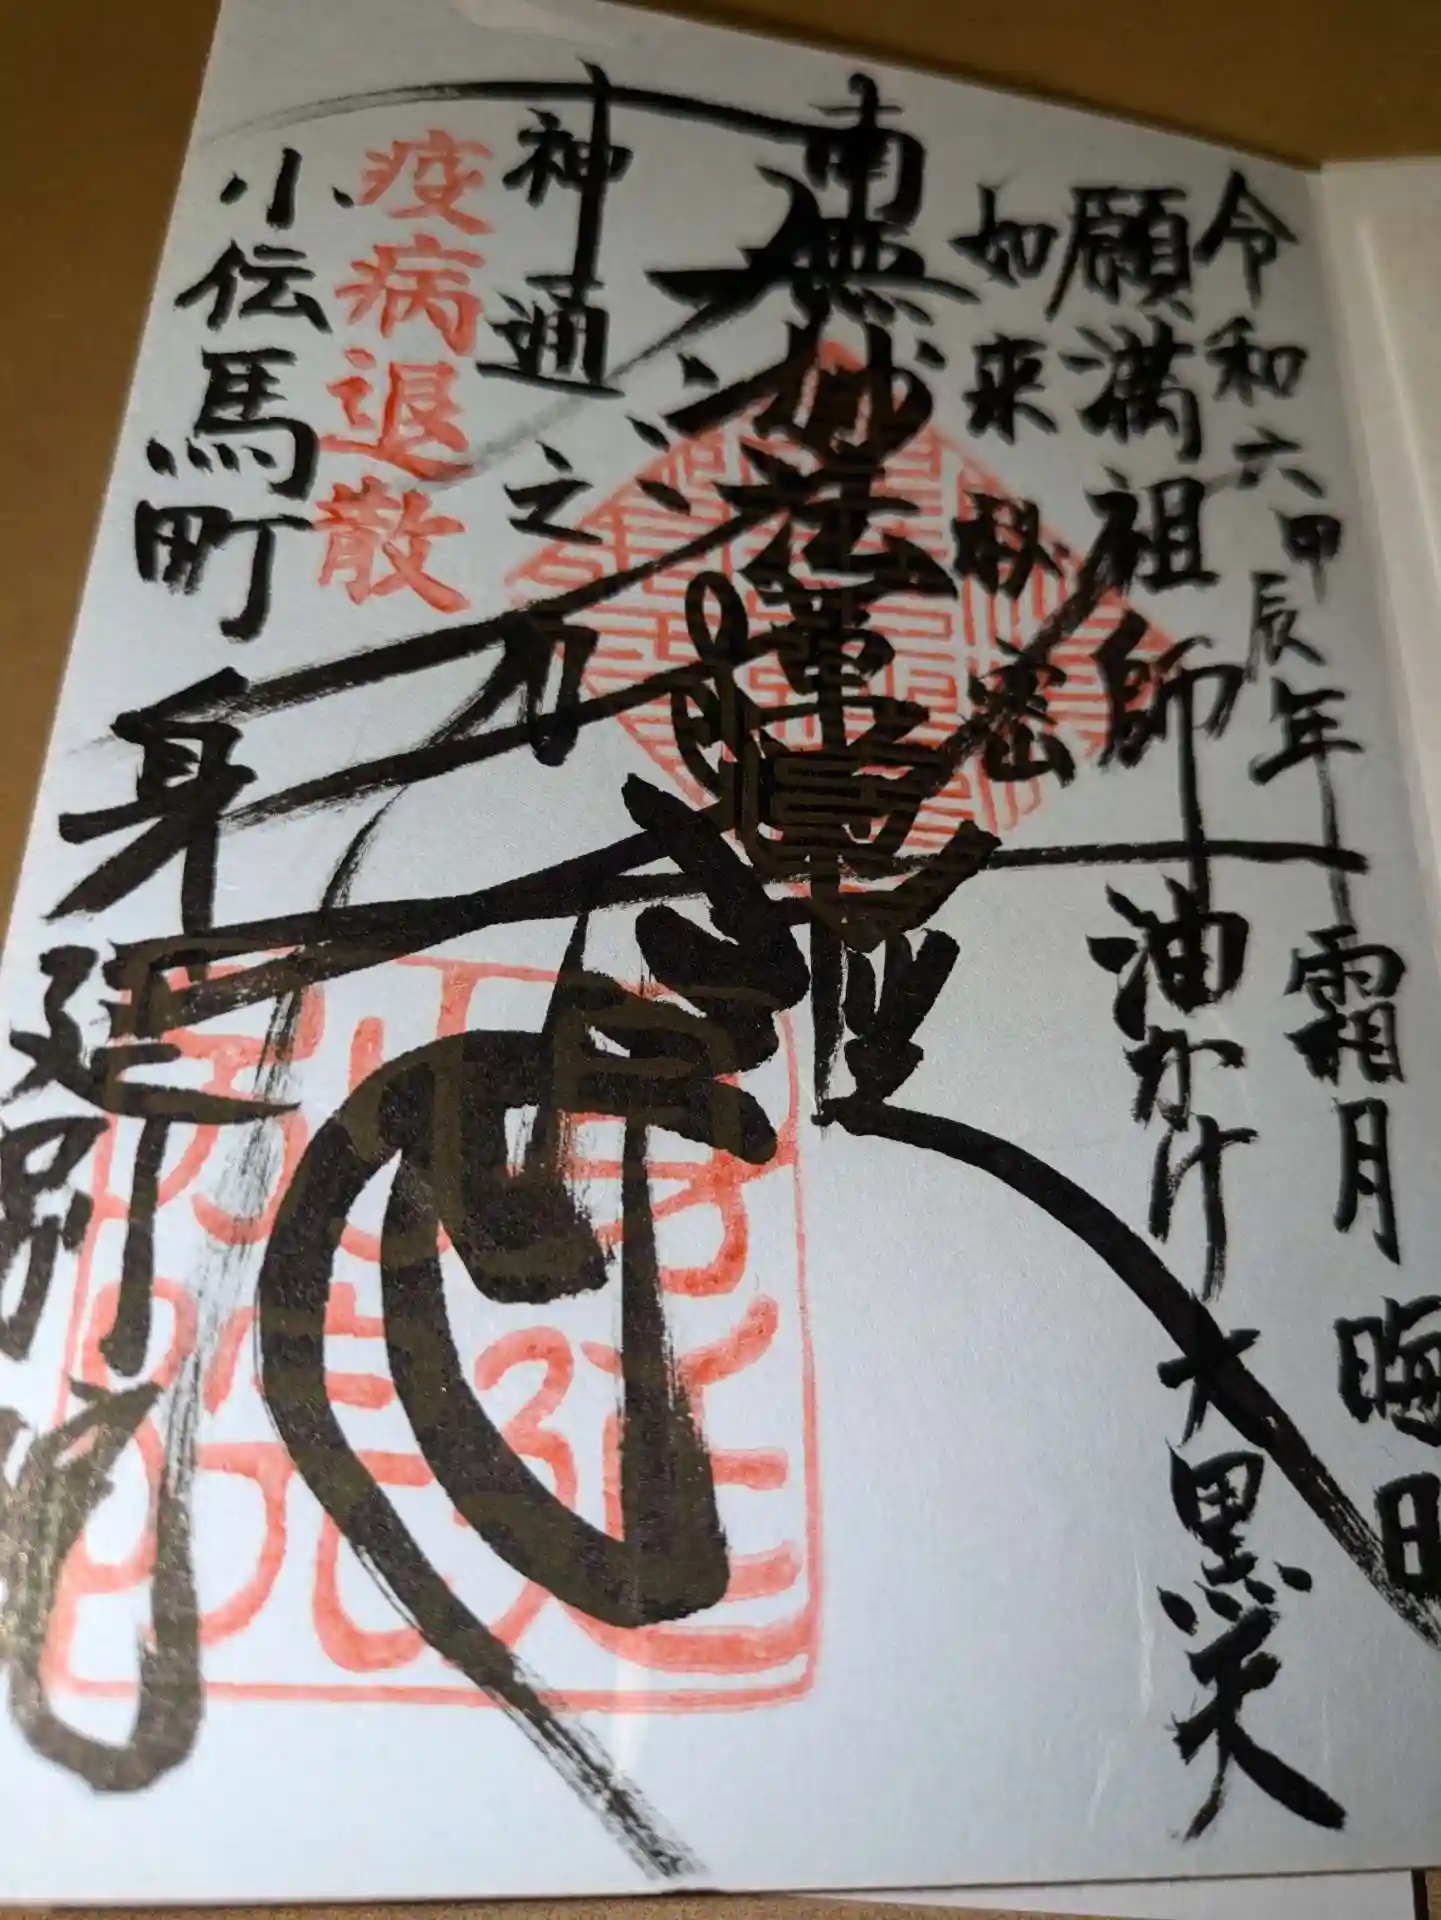 令和六甲辰年霜月晦日
願満祖師油かけ大黒天
如来秘密
南無妙法蓮華経
神通之力
疫病退散
小伝馬町身延別院